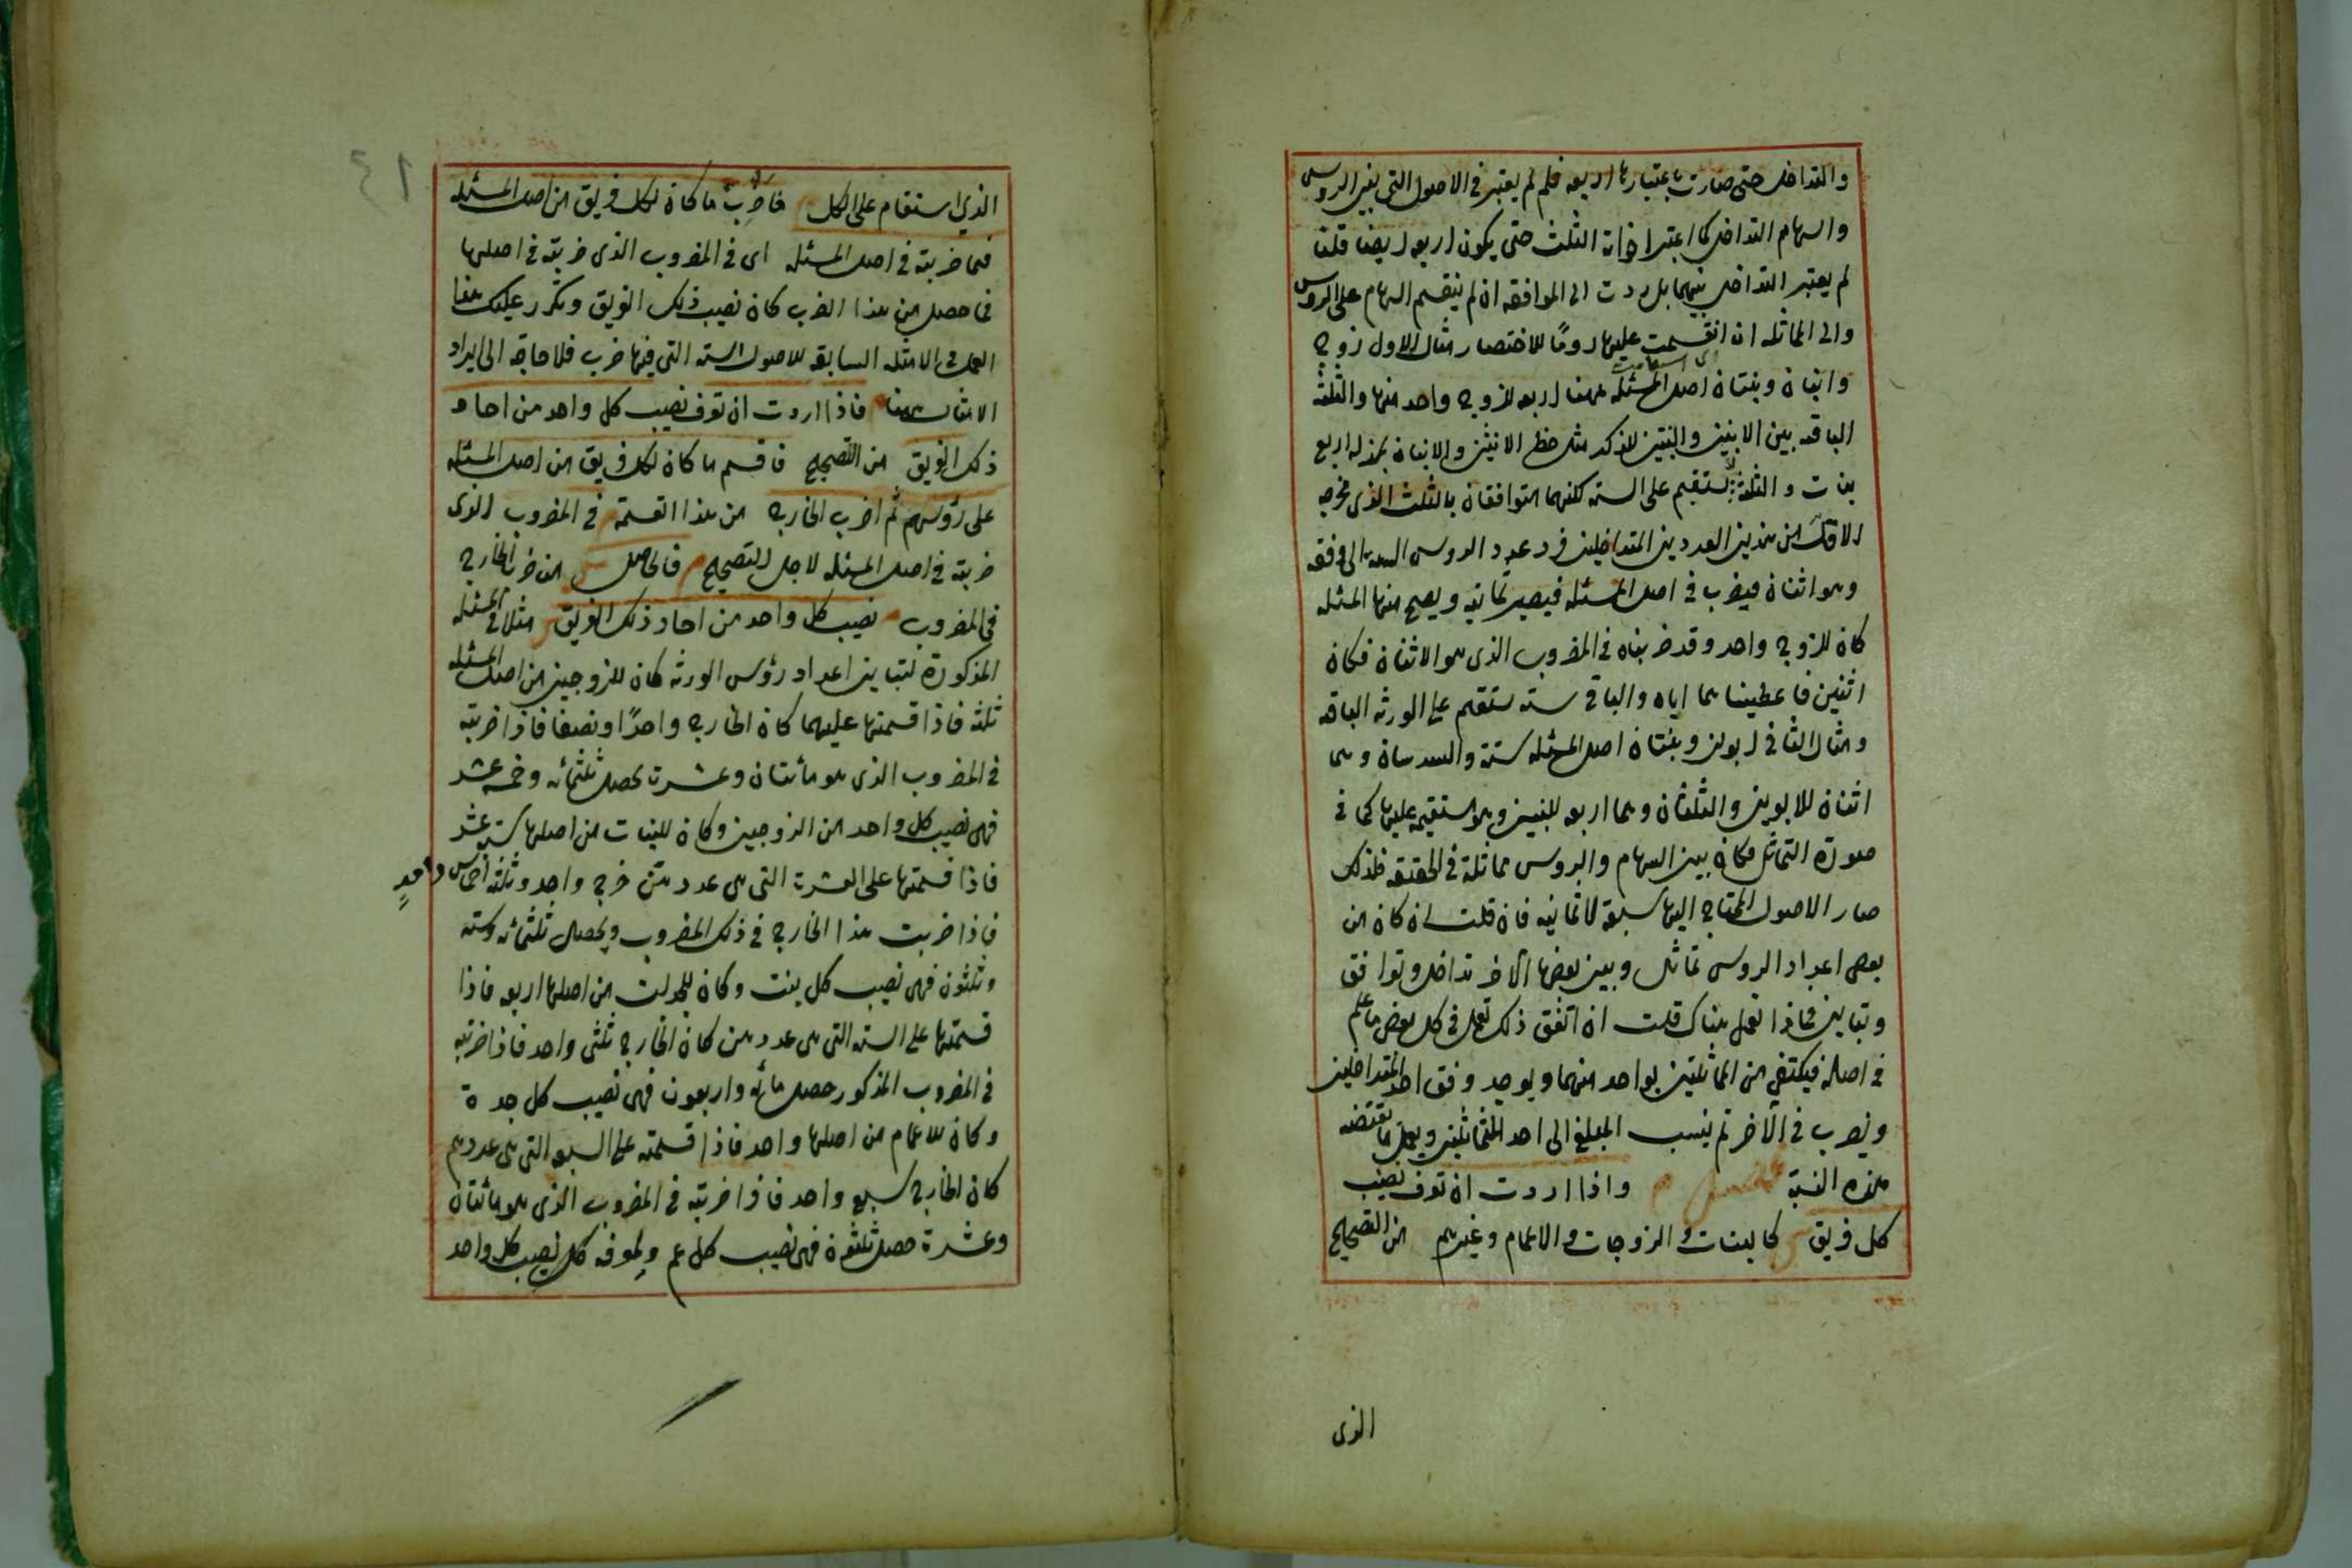 والتداخل حتى صارت باعتبارها اربعه فلم لم يعتبر فى الاصول التى بين الروس
والسهام التداخل كما اعتبر اذا ن الثلث حتى يكون اربعه ايضا قلنا
لم يعتبر التداخل بينهما بل ردت الى الموافقه ان لم ينقسم السهام على الروس
والى المماثله ان انقسمت عليها رومًا للاختصار مثال الاول زوج
وابنان وبنتان اصل المسئله ههنا اربعه للزوج واحد منها والثلثة
الباقيه بين الابنين والبنتين للذكر مثل حظ الانثيين والابنان بمنزله اربع
بنات والثلثة لا تستقيم على السته لكنهما متوافقان بالثلث الذى مخرجه
الاقل من هذين العددين المتداخلين فرد عدد الروس الستة الى وفقه
وهو اثنان فيضرب فى اصل المسئله فيصير ثمانيه ويصح منها المسئله
كان للزوج واحد وقد ضربناه فى المضروب الذى هو الاثنان فكان
اثنين فاعطيناهما اياه والباقى سته تستقيم على الورثه الباقيه
ومثال الثانى ابوين وبنتان اصل المسئله ستة والسدسان وهما
اثنان للابوين والثلثان وهما اربعه للبنتين وهو مستقيمه عليها كما فى
صورة التماثل فكان بين السهام والروس مماثلة فى الحقيقه فلذلك
صار الاصول المحتاج اليها سبعة لا ثمانيه فان قلت ان كان من
بعض اعداد الروس تماثل وبين بعضها الاخر تداخل وتوافق
وتباين فماذا تعمل هناك قلت ان اتفق ذلك تعمل فى كل بعض ما علم
فى اصله فيكتفى من المماثلين بواحد منهما ويوجد وفق احد المتداخلين
ويضرب فى الاخر ثم ينسب المبلغ الى احد المتماثلين ويعمل ما تقتضه
هذه النسبة فصل م واذا اردت ان تعرف نصيب
كل فريق ش كالبنات والزوجات والاعمام وغيرهم من التصحيح
الذى
الذى استقام على الكل فاضرب ما كان لكل فريق من اصل المسئله
فيما ضربته فى اصل المسئله اى فى المضروب الذى ضربته فى اصلها
فما حصل من هذا الضرب كان نصيب ذلك الفريق وتكرر عليك هذا
العمل فى الامثله السابقه للاصول السته التى فيها ضرب فلا حاجه الى ايراد
الامثال ههنا فاذا اردت ان تعرف نصيب كل واحد من احاد
ذلك الفريق من التصحيح فاقسم ما كان لكل فريق من اصل المسئله
على رؤسهم ثم اضرب الخارج من هذا القسمة فى المضروب الذى
ضربته فى اصل المسئله لاجل التصحيح م فالحاصل ش من ضرب الخارج
فى المضروب م نصيب كل واحد من احاد ذلك الفريق ش مثلا فى المسئله
المذكورة لتباين اعداد رؤس الورثه كان للزوجين من اصل المسئله
ثلثه فاذا قسمتها عليهما كان الخارج واحدًا ونصفا فاذا ضربته
فى المضروب الذى هو مأئتان وعشرة يحصل ثلثمائه وخمسه عشر
فهى نصيب كل واحد من الزوجين وكان للبنات من اصلها ستة عشر
فاذا قسمتها على العشرة التى هى عددهن خرج واحد وثلثه اخماس واحدٍ
فاذا ضربت هذا الخارج فى ذلك المضروب ويحصل ثلثمائه وسته
وثلثون فهى نصيب كل بنت وكان للجدات من اصلها اربعه فاذا
قسمتها على السته التى هى عددهن كان الخارج ثلثى واحد فاذا ضربته
فى المضروب المذكور حصل مائه واربعون فهى نصيب كل جدة
وكان للاعمام من اصلها واحد فاذا قسمته على السبعه التى هى عددهم
كان الخارج سبع واحد فاذا ضربته فى المضروب الذى هو مائتان
وعشرة حصل ثلثون فهى نصيب كل عم ولمعرفه كل نصيب كل واحد